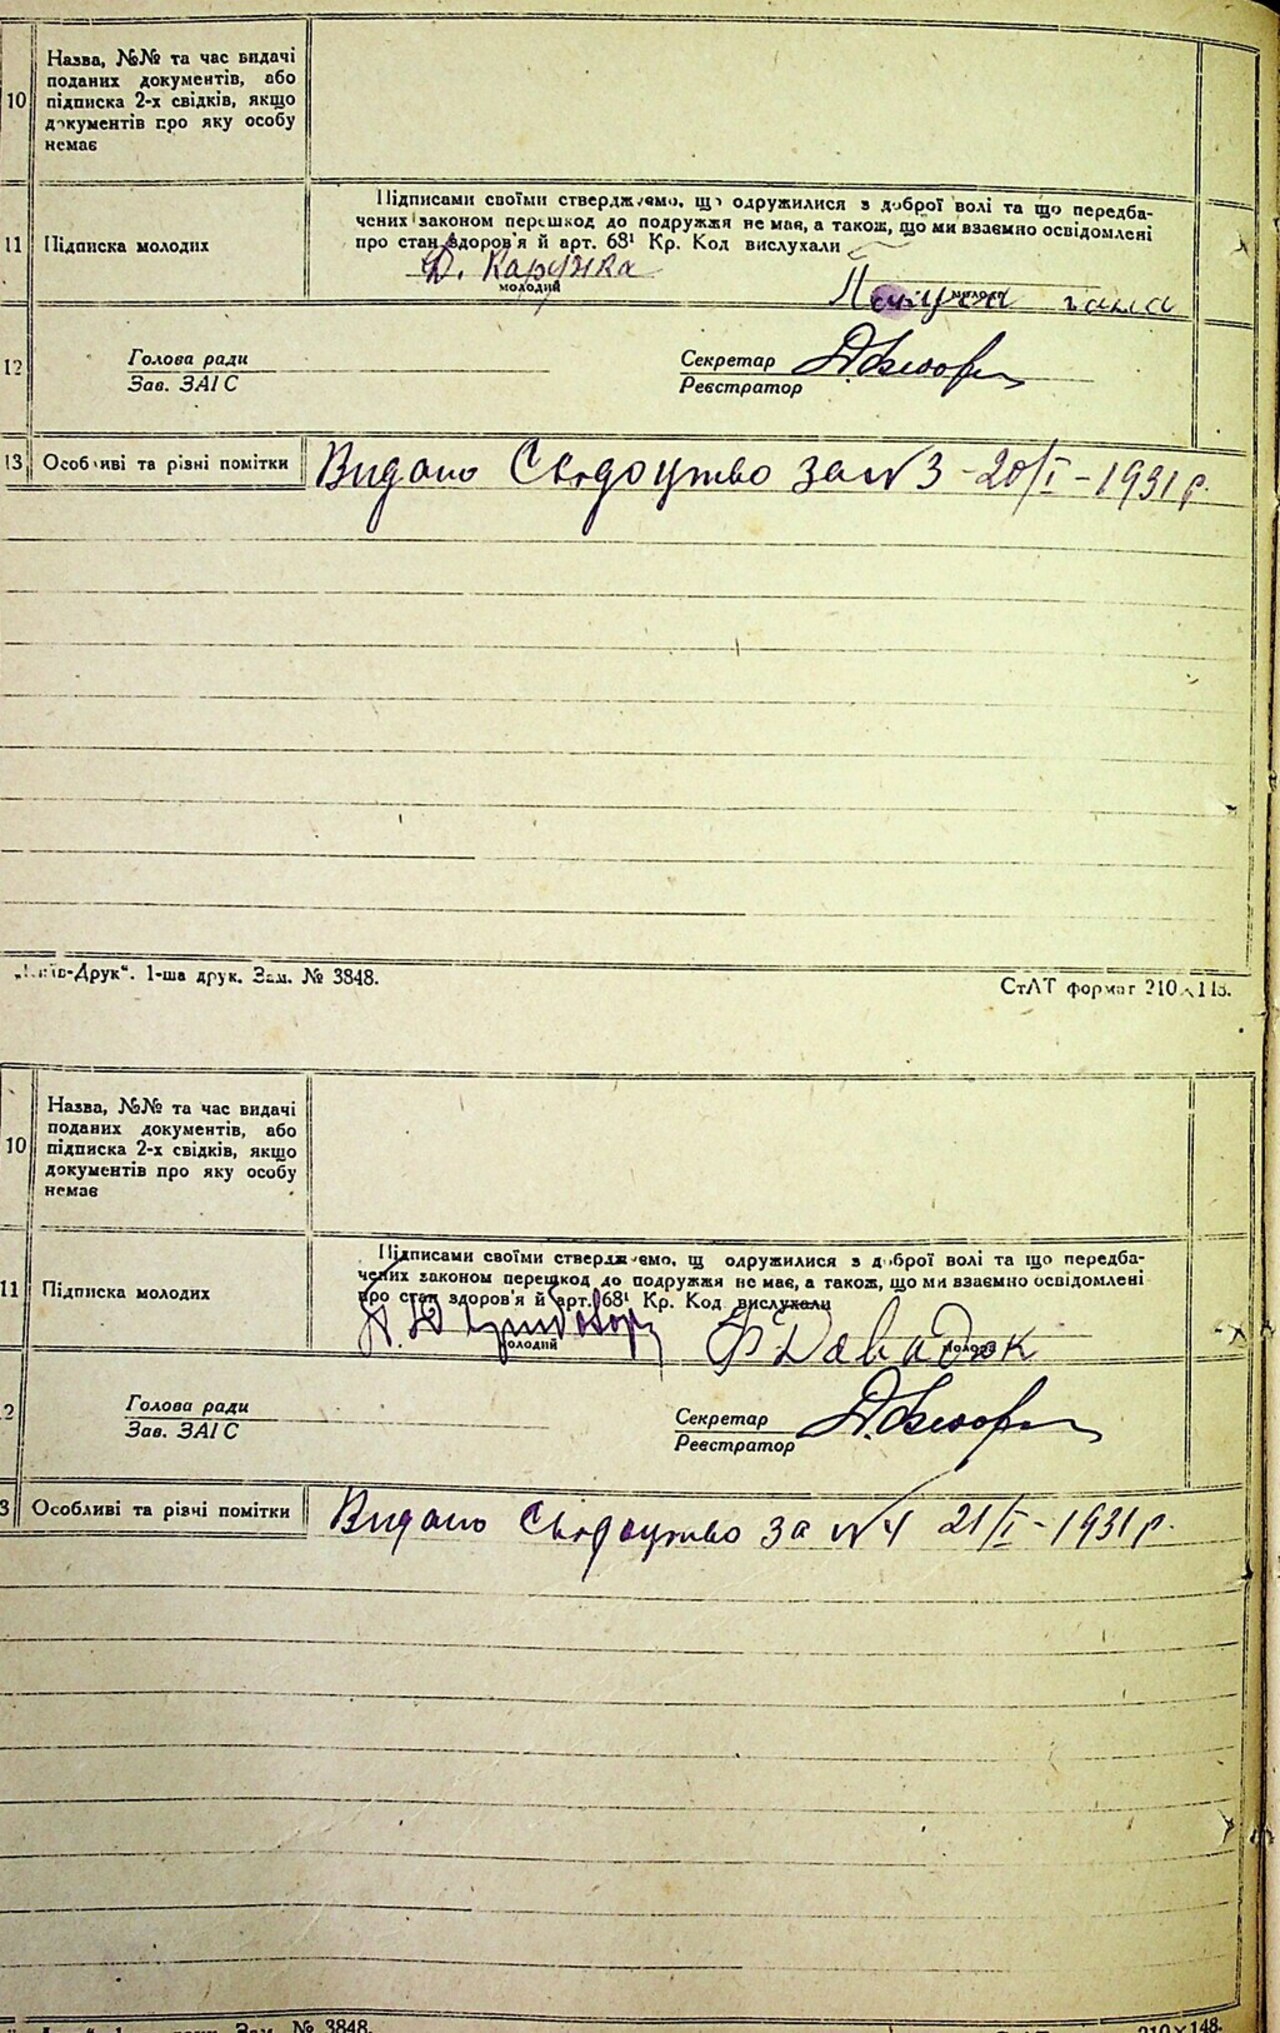 10
Назва, №№ та час видачі
поданих документів, або
підписка 2-х свідків, якщо
документів про яку особу
немає
11
Підписка молодих
Підписами своїми стверджуємо, що одружилися з доброї волі та що передба-
чених законом перешкод до подружжя не має, а також, що ми взаємно освідомлені
про стан здоров'я й арт. 68¹ Кр. Код вислухали
Каружка
молодий
молода
12
Голова ради
Зав. ЗАГС
Секретар
Реєстратор
13
Особливі та різні помітки
Видано Свідоцтво за № 3 - 20/I - 1931 р.
„Київ-Друк“. 1-ша друк. Зам. № 3848.
СтАТ формат 210×148.
10
Назва, №№ та час видачі
поданих документів, або
підписка 2-х свідків, якщо
документів про яку особу
немає
11
Підписка молодих
Підписами своїми стверджуємо, що одружилися з доброї волі та що передба-
чених законом перешкод до подружжя не має, а також, що ми взаємно освідомлені
про стан здоров'я й арт. 68¹ Кр. Код вислухали
молодий
молода
2
Голова ради
Зав. ЗАГС
Секретар
Реєстратор
3
Особливі та різні помітки
Видано Свідоцтво за № 4 21/I - 1931 р.
Зам. № 3848.
210×148.